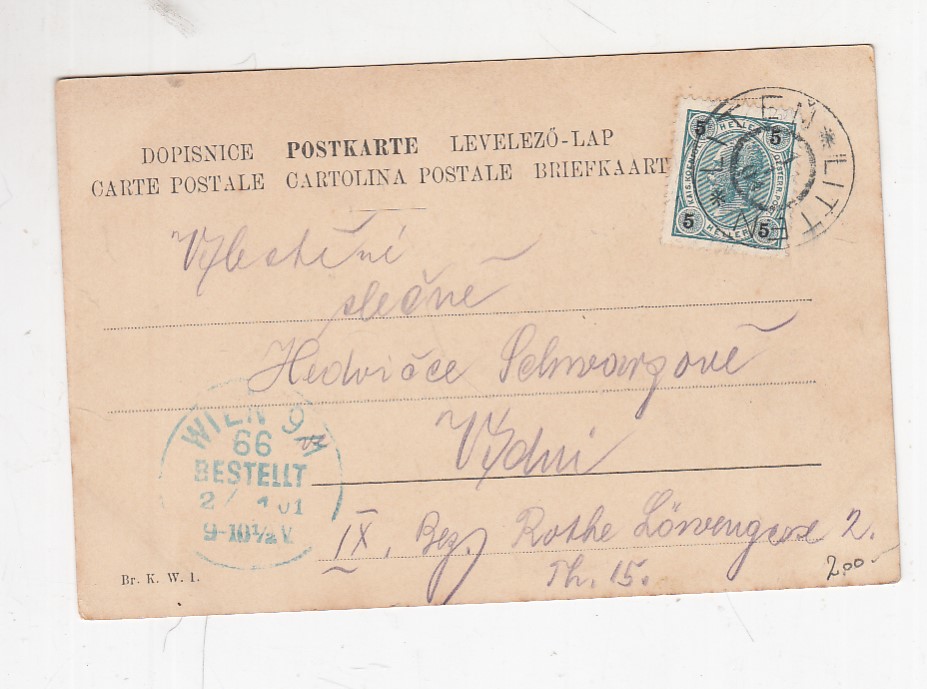 DOPISNICE POSTKARTE LEVELEZŐ-LAP
CARTE POSTALE CARTOLINA POSTALE BRIEFKAART
5 HELLER 5
KAIS. KÖNIGL. OESTERR. POST
5 HELLER 5
LITT
slečně
Hedvičce Schwarzově
Vídni
IX. Bez. Rothe Löwengasse 2.
Th. 15.
WIEN 9
66
BESTELLT
9-10½ V
Br. K. W. 1.
2,00